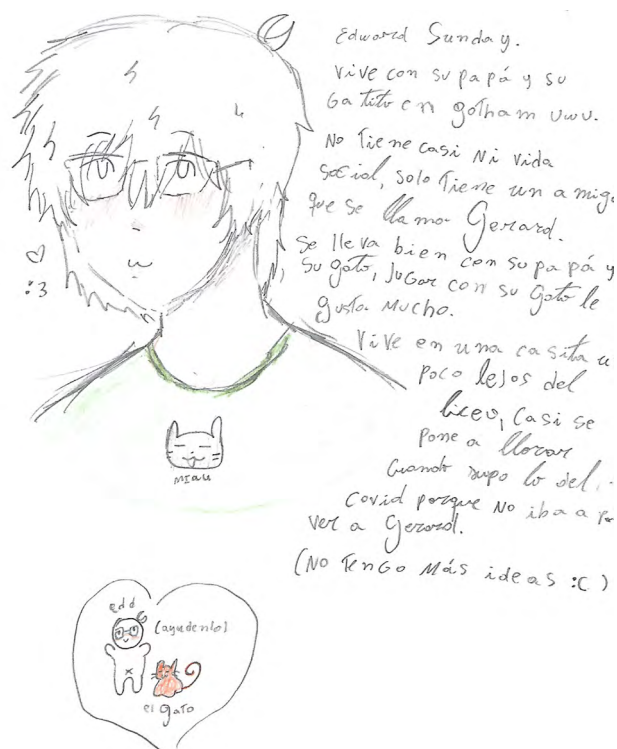 Edward Sunday.
Vive con su papá y su
Gatito en gotham uwu.
No Tiene casi Ni vida
social, solo Tiene un amig
que se llama Gerard.
Se lleva bien con su papá y
Su gato, Jugar con su Gato le
gusta Mucho.
Vive en una casita u
poco lejos del
liceo, Casi se
pone a llorar
Cuando supo lo del
Covid porque No iba a Po
ver a Gerard.
(No Tengo Más ideas :c )
♡
:3
MIAU
edd
(ayudenlo)
el gato